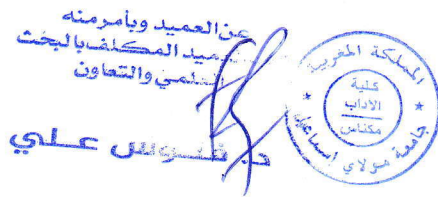 عن العميد وبأمر منه
العميد المكلف بالبحث
العلمي والتعاون
د. علي
المملكة المغربية
كلية
الآداب
مكناس
جامعة مولاي اسماعيل